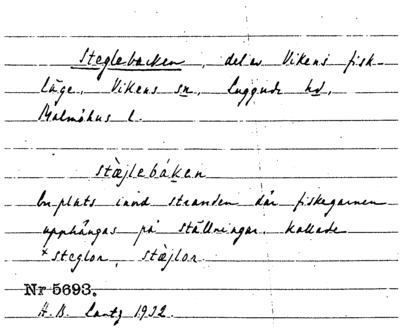 Steglebacken, del av Vikens fisk-
läge, Vikens sn, Luggude hd,
Malmöhus l.
stæjlebáken
En plats invid stranden där fiskegarnen
upphängas på ställningar, kallade
*steglor, stæjlor.
Nr 5693.
H.B. Lantz 1932.